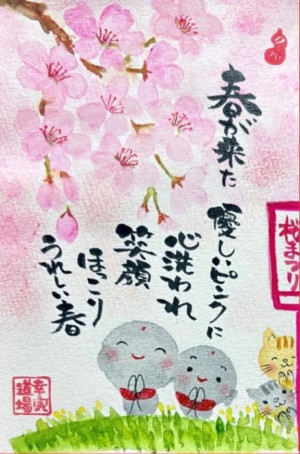 春が来た
優しいピンクに
心洗われ
笑顔
ほっこり
うれしい春
桜まつり
道場